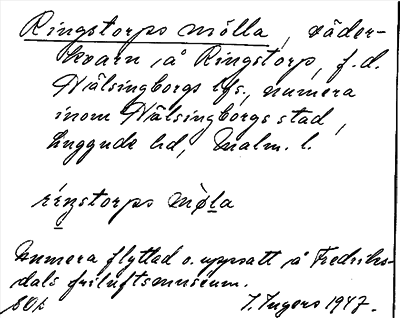 Ringstorps mölla, väder-
kvarn å Ringstorp, f.d.
Hälsingborgs lfs., numera
inom Hälsingborgs stad,
Luggude hd, Malm. l.
ríŋstorps mø̀la
Numera flyttad o. uppsatt å Fredriks-
dals friluftsmuseum.
I. Ingers 1947.